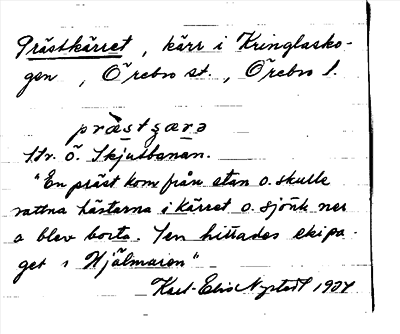 Prästkärret, kärr i Kringlasko-
gen, Örebro st., Örebro l.
præstɕæɾə
Str. ö. Skjutbanan.
"En präst kom från stan o. skulle
vattna hästarna i kärret o. sjönk ner
o blev borta. Sen hittades ekipa-
get i Hjälmaren"
Karl-Elis Nystedt 1924